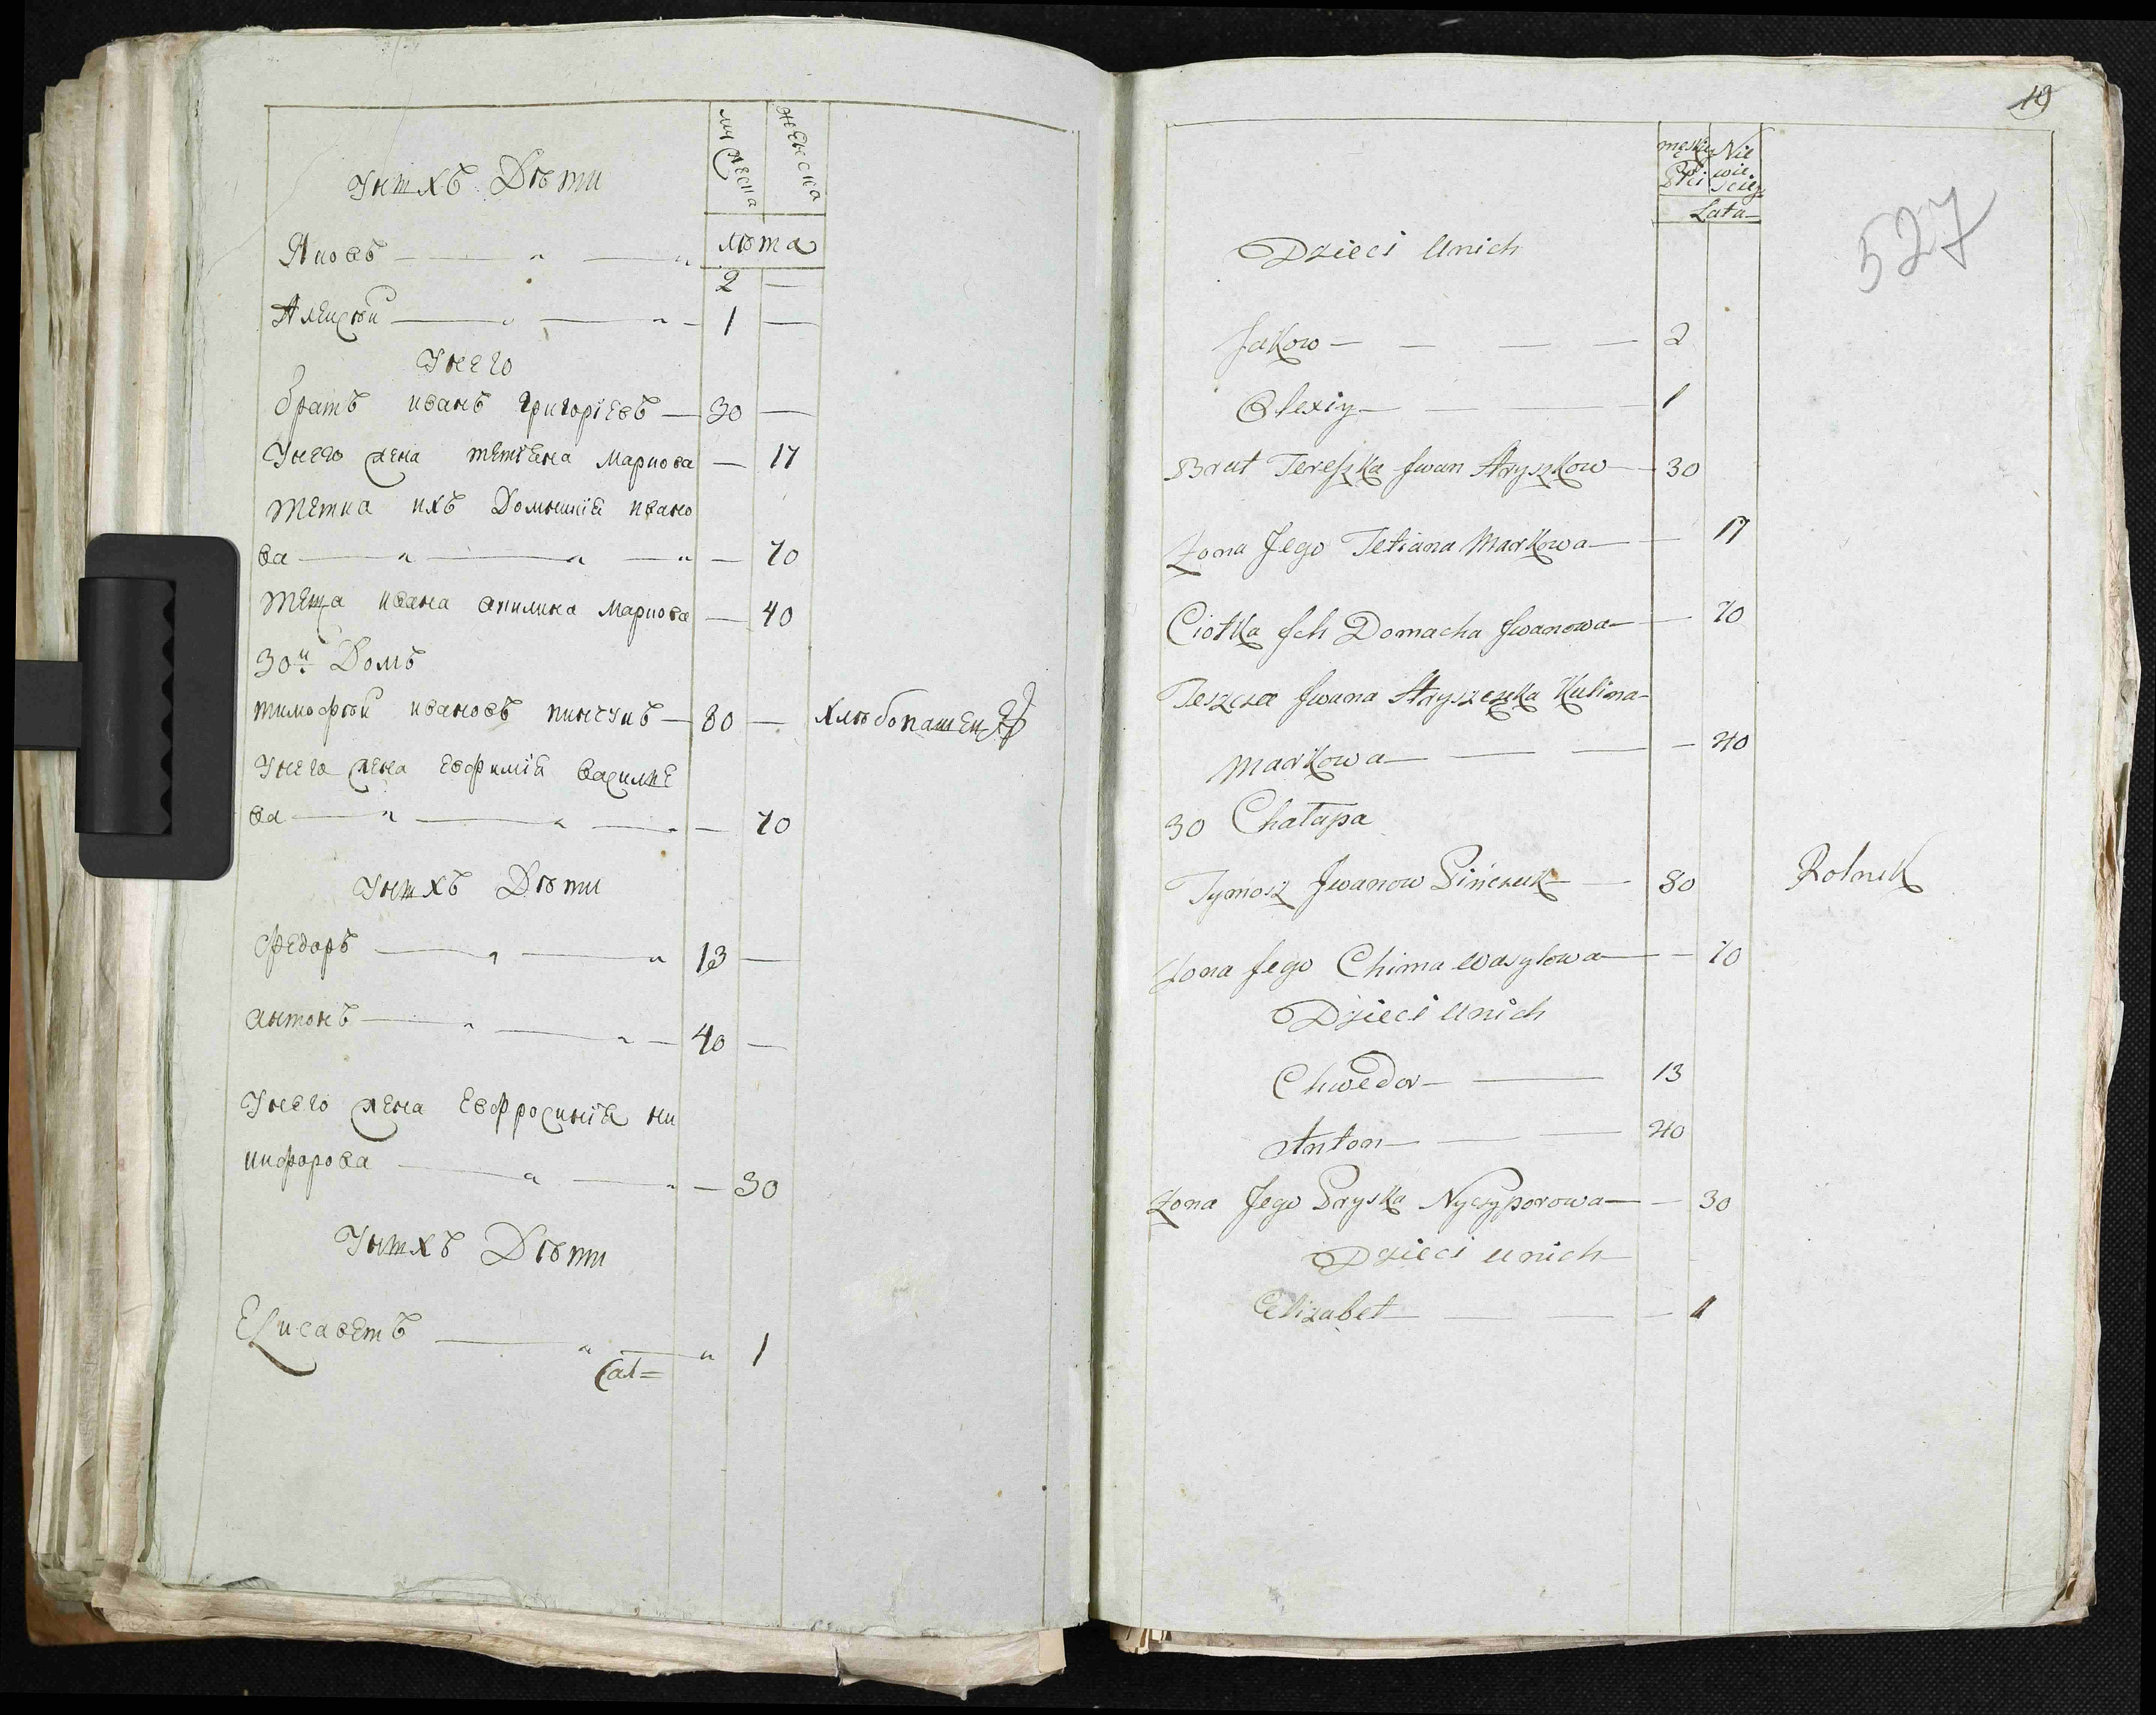 мужеска
женска
Унихъ Дѣти
лѣта
Яковъ — " — "
2 —
Алексѣй — " — " — 1 —
Унего
братъ иванъ григорїевъ — 30 —
Унего жена тетїана Маркова — 17
тетка ихъ Домникїя ивано
ва — " — " — " — 70
теща ивана акилина Маркова — 40
30й Домъ
тимофѣй ивановъ пинчукъ — 80 — хлѣбопашецъ
Унего жена Евфимїя василие
ва — " — " — " — 70
Унихъ Дѣти
Федоръ — " — " 13 —
антонъ — " — " — 40 —
Унего жена Евфросинїя ни
кифорова — " — " — 30
Унихъ Дѣти
Елисаветъ — " — " 1
Сал=
49
męskiey Płci
Niewiesciey
Lata
527
Dzieci Unich
Jakow — — — — 2
Olexiy — — — 1
Brat Tereszka Iwan Hryszkow — 30
Żona Jego Tetiana Markowa — — 17
Ciotka Ich Domacha Iwanowa — — 70
Teszcza Iwana Hryszczuka Kulina
Markowa — — — 40
30 Chałupa
Tymosz Iwanow Pinczuk — — 80 Rolnik
Żona Jego Chima Wasylowa — — 70
Dzieci Unich
Chwedor — — 13
Anton — — — 40
Żona Jego Pryska Nyczyporowa — — 30
Dzieci Unich
Elizabet — — — — 1